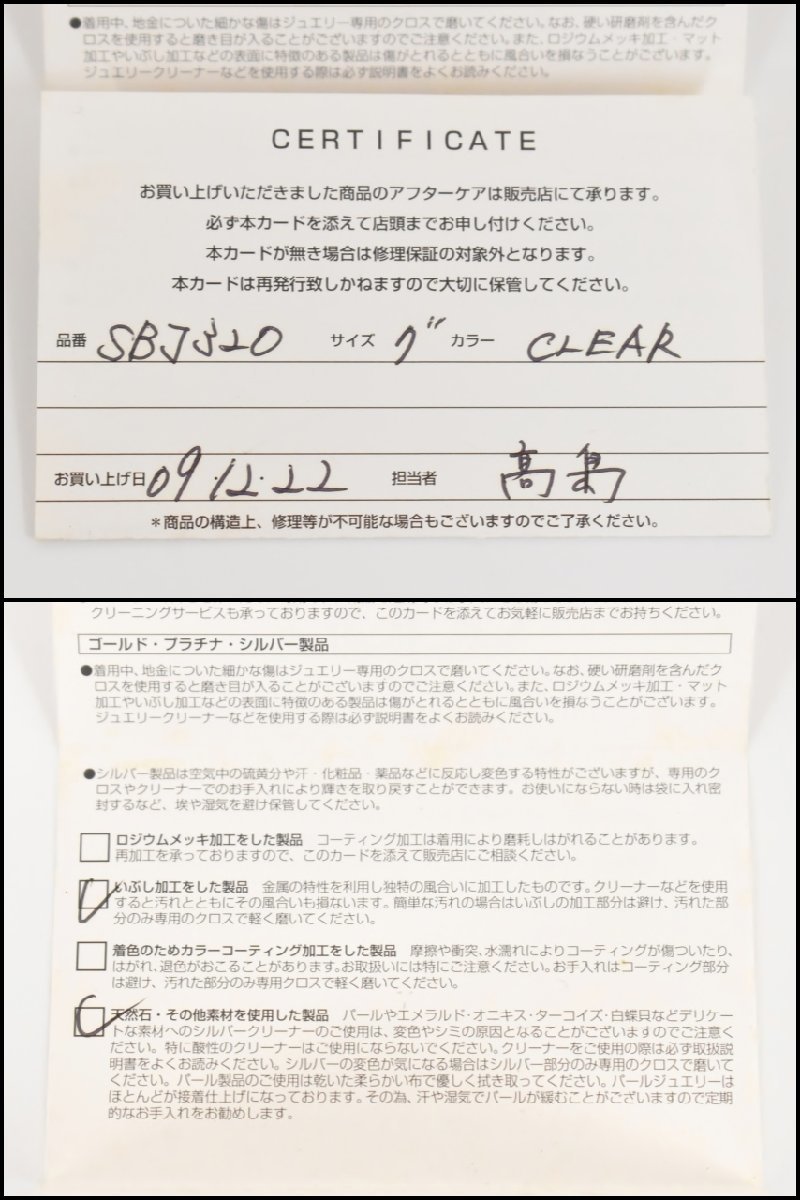 ●着用中、地金についた細かな傷はジュエリー専用のクロスで磨いてください。なお、硬い研磨剤を含んだク
ロスを使用すると磨き目が入ることがございますのでご注意ください。また、ロジウムメッキ加工・マット
加工やいぶし加工などの表面に特徴のある製品は傷がとれるとともに風合いを損なうことがございます。
ジュエリークリーナーなどを使用する際は必ず説明書をよくお読みください。
CERTIFICATE
お買い上げいただきました商品のアフターケアは販売店にて承ります。
必ず本カードを添えて店頭までお申し付けください。
本カードが無き場合は修理保証の対象外となります。
本カードは再発行致しかねますので大切に保管してください。
品番 SBJ320 サイズ カラー CLEAR
お買い上げ日 09.12.22 担当者 高島
＊商品の構造上、修理等が不可能な場合もございますのでご了承ください。
クリーニングサービスも承っておりますので、このカードを添えてお気軽に販売店までお持ちください。
ゴールド・プラチナ・シルバー製品
●着用中、地金についた細かな傷はジュエリー専用のクロスで磨いてください。なお、硬い研磨剤を含んだク
ロスを使用すると磨き目が入ることがございますのでご注意ください。また、ロジウムメッキ加工・マット
加工やいぶし加工などの表面に特徴のある製品は傷がとれるとともに風合いを損なうことがございます。
ジュエリークリーナーなどを使用する際は必ず説明書をよくお読みください。
●シルバー製品は空気中の硫黄分や汗・化粧品・薬品などに反応し変色する特性がございますが、専用のク
ロスやクリーナーでのお手入れにより輝きを取り戻すことができます。お使いにならない時は袋に入れ密
封するなど、埃や湿気を避け保管してください。
ロジウムメッキ加工をした製品 コーティング加工は着用により磨耗しはがれることがあります。
再加工を承っておりますので、このカードを添えて販売店にご相談ください。
いぶし加工をした製品 金属の特性を利用し独特の風合いに加工したものです。クリーナーなどを使用
すると汚れとともにその風合いも損ないます。簡単な汚れの場合はいぶしの加工部分は避け、汚れた部
分のみ専用のクロスで軽く磨いてください。
着色のためカラーコーティング加工をした製品 摩擦や衝突、水濡れによりコーティングが傷ついたり、
はがれ、退色がおこることがあります。お取扱いには特にご注意ください。お手入れはコーティング部分
は避け、汚れた部分のみ専用クロスで軽く磨いてください。
天然石・その他素材を使用した製品 パールやエメラルド・オニキス・ターコイズ・白蝶貝などデリケー
トな素材へのシルバークリーナーのご使用は、変色やシミの原因となることがございますのでご注意くだ
さい。特に酸性のクリーナーはご使用にならないでください。クリーナーをご使用の際は必ず取扱説
明書をよくお読みください。シルバーの変色が気になる場合はシルバー部分のみ専用のクロスで磨いて
ください。パール製品のご使用は乾いた柔らかい布で優しく拭き取ってください。パールジュエリーは
ほとんどが接着仕上げになっております。その為、汗や湿気でパールが緩むことがございますので定期
的なお手入れをお勧めします。